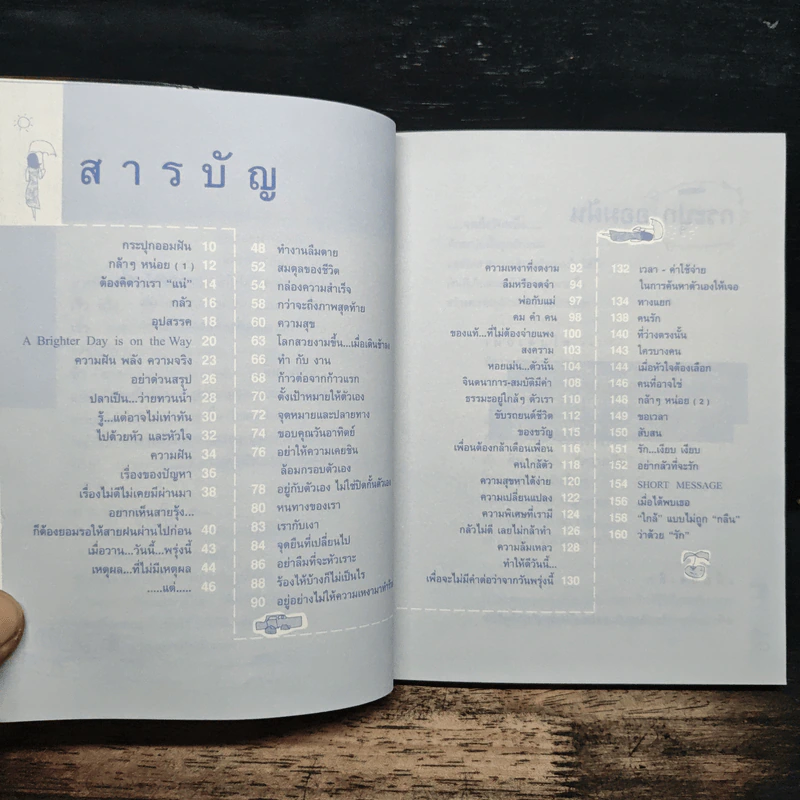 สารบัญ
กระปุกออมฝัน 10
กล้าๆ หน่อย (1) 12
ต้องคิดว่าเรา “แน่” 14
กลัว 16
อุปสรรค 18
A Brighter Day is on the Way 20
ความฝัน พลัง ความจริง 23
อย่าด่วนสรุป 26
ปลาเป็น...ว่ายทวนน้ำ 28
รู้...แต่อาจไม่เท่าทัน 30
ไปด้วยหัว และหัวใจ 32
ความฝัน 34
เรื่องของปัญหา 36
เรื่องไม่ดีไม่เคยมีผ่านมา 38
อยากเห็นสายรุ้ง...
ก็ต้องยอมรอให้สายฝนผ่านไปก่อน 40
เมื่อวาน...วันนี้...พรุ่งนี้ 43
เหตุผล...ที่ไม่มีเหตุผล 44
.....แต่..... 46
48 ทำงานลืมตาย
52 สมดุลของชีวิต
54 กล่องความสำเร็จ
58 กว่าจะถึงภาพสุดท้าย
60 ความสุข
63 โลกสวยงามขึ้น...เมื่อเดินช้าลง
66 ทำ กับ งาน
68 ก้าวต่อจากก้าวแรก
70 ตั้งเป้าหมายให้ตัวเอง
72 จุดหมายและปลายทาง
74 ขอบคุณวันอาทิตย์
76 อย่าให้ความเคยชิน
ล้อมกรอบตัวเอง
78 อยู่กับตัวเอง ไม่ใช่ปิดกั้นตัวเอง
80 หนทางของเรา
83 เรากับเงา
84 จุดยืนที่เปลี่ยนไป
86 อย่าลืมที่จะหัวเราะ
88 ร้องไห้บ้างก็ไม่เป็นไร
90 อยู่อย่างไม่ให้ความเหงามา
ความเหงาที่งดงาม 92
ลืมหรือจดจำ 94
พ่อกับแม่ 97
คม คำ คน 98
ของแท้...ที่ไม่ต้องจ่ายแพง 100
สงคราม 103
หอยเม่น...ตัวนั้น 104
จินตนาการ-สมบัติมีค่า 108
ธรรมะอยู่ใกล้ๆ ตัวเรา 110
ขับรถยนต์ชีวิต 112
ของขวัญ 115
เพื่อนต้องกล้าเตือนเพื่อน 116
คนใกล้ตัว 118
ความสุขหาได้ง่าย 120
ความเปลี่ยนแปลง 122
ความพิเศษที่เรามี 124
กลัวไม่ดี เลยไม่กล้าทำ 126
ความล้มเหลว 128
ทำให้ดีวันนี้...
เพื่อจะไม่มีคำต่อว่าจากวันพรุ่งนี้ 130
132 เวลา - ค่าใช้จ่าย
ในการค้นหาตัวเองให้เจอ
134 ทางแยก
138 คนรัก
140 ที่ว่างตรงนั้น
143 ใครบางคน
144 เมื่อหัวใจต้องเลือก
146 คนที่อาจใช่
148 กล้าๆ หน่อย (2)
149 ขอเวลา
150 สับสน
151 รัก...เงียบ เงียบ
152 อย่ากลัวที่จะรัก
154 SHORT MESSAGE
156 เมื่อได้พบเธอ
158 “ใกล้” แบบไม่ถูก “กลืน”
160 ว่าด้วย “รัก”